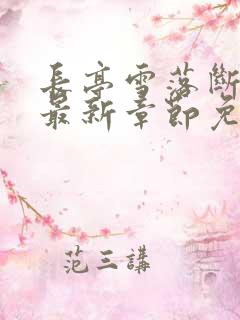 長亭雪落斷
最新章節免
范三講